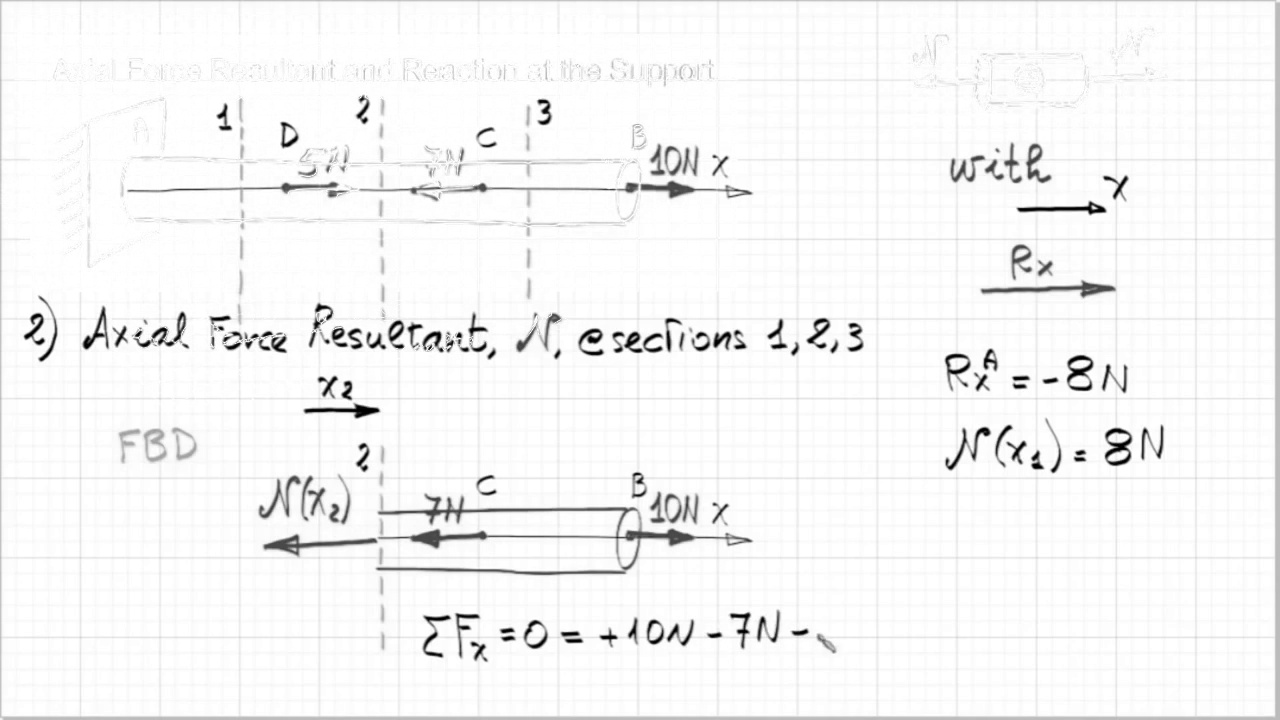 Axial Force Resultant and Reaction at the Support
N N
1 2 3
A D 5N 7N C B 10N x
with x
Rx
2) Axial Force Resultant, N, @sections 1,2,3
RxA = -8N
x2
FBD
N(x1) = 8N
2
N(x2) 7N C B 10N x
ΣFx = 0 = +10N - 7N -